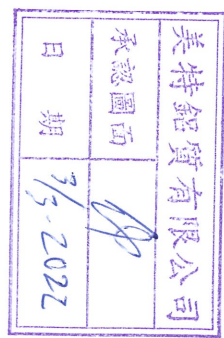 美特鋁質有限公司
承認圖面
日期
3/3-2022